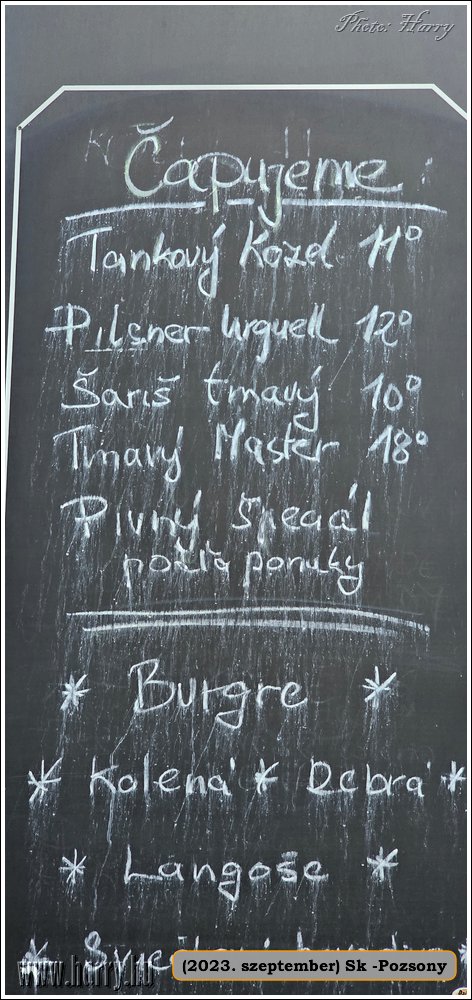 Photo: Harry
Čapujeme
Tankový Kozel 11°
Pilsner Urquell 12°
Šariš tmavý 10°
Tmavý Master 18°
Pivný špeciál
podľa ponuky
* Burgre *
* Kolená * Rebrá *
* Langoše *
www.harry.hu
(2023. szeptember) Sk -Pozsony